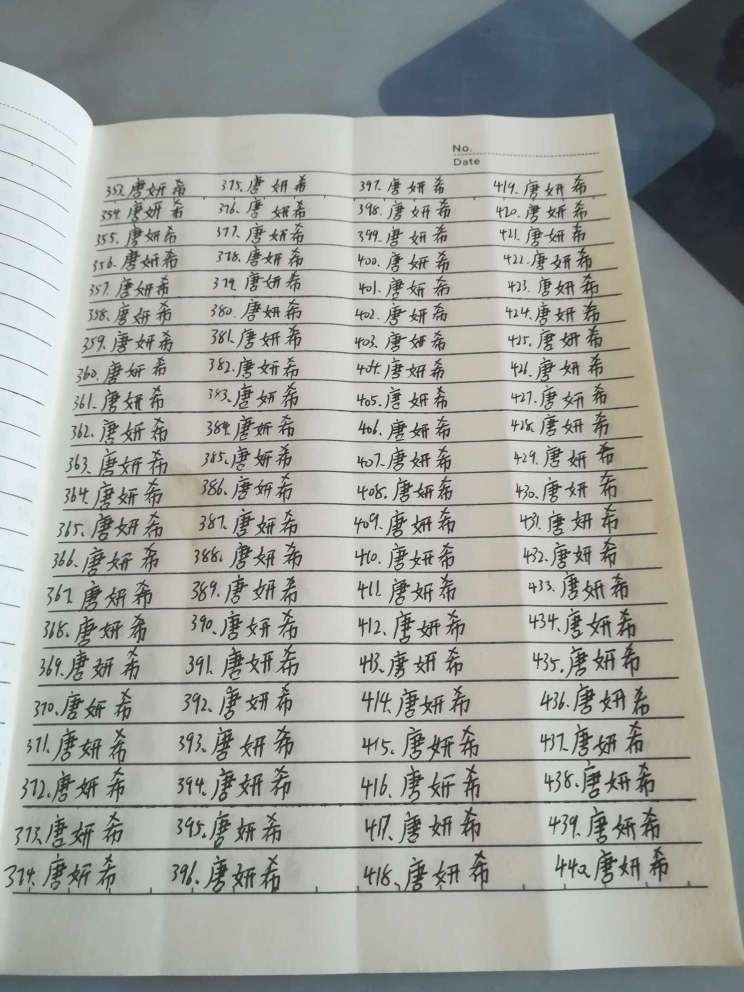 No.
Date
353.唐妍希 375.唐妍希 397.唐妍希 419.唐妍希
354.唐妍希 376.唐妍希 398.唐妍希 420.唐妍希
355.唐妍希 377.唐妍希 399.唐妍希 421.唐妍希
356.唐妍希 378.唐妍希 400.唐妍希 422.唐妍希
357.唐妍希 379.唐妍希 401.唐妍希 423.唐妍希
358.唐妍希 380.唐妍希 402.唐妍希 424.唐妍希
359.唐妍希 381.唐妍希 403.唐妍希 425.唐妍希
360.唐妍希 382.唐妍希 404.唐妍希 426.唐妍希
361.唐妍希 383.唐妍希 405.唐妍希 427.唐妍希
362.唐妍希 384.唐妍希 406.唐妍希 428.唐妍希
363.唐妍希 385.唐妍希 407.唐妍希 429.唐妍希
364.唐妍希 386.唐妍希 408.唐妍希 430.唐妍希
365.唐妍希 387.唐妍希 409.唐妍希 431.唐妍希
366.唐妍希 388.唐妍希 410.唐妍希 432.唐妍希
367.唐妍希 389.唐妍希 411.唐妍希 433.唐妍希
368.唐妍希 390.唐妍希 412.唐妍希 434.唐妍希
369.唐妍希 391.唐妍希 413.唐妍希 435.唐妍希
370.唐妍希 392.唐妍希 414.唐妍希 436.唐妍希
371.唐妍希 393.唐妍希 415.唐妍希 437.唐妍希
372.唐妍希 394.唐妍希 416.唐妍希 438.唐妍希
373.唐妍希 395.唐妍希 417.唐妍希 439.唐妍希
374.唐妍希 396.唐妍希 418.唐妍希 440.唐妍希